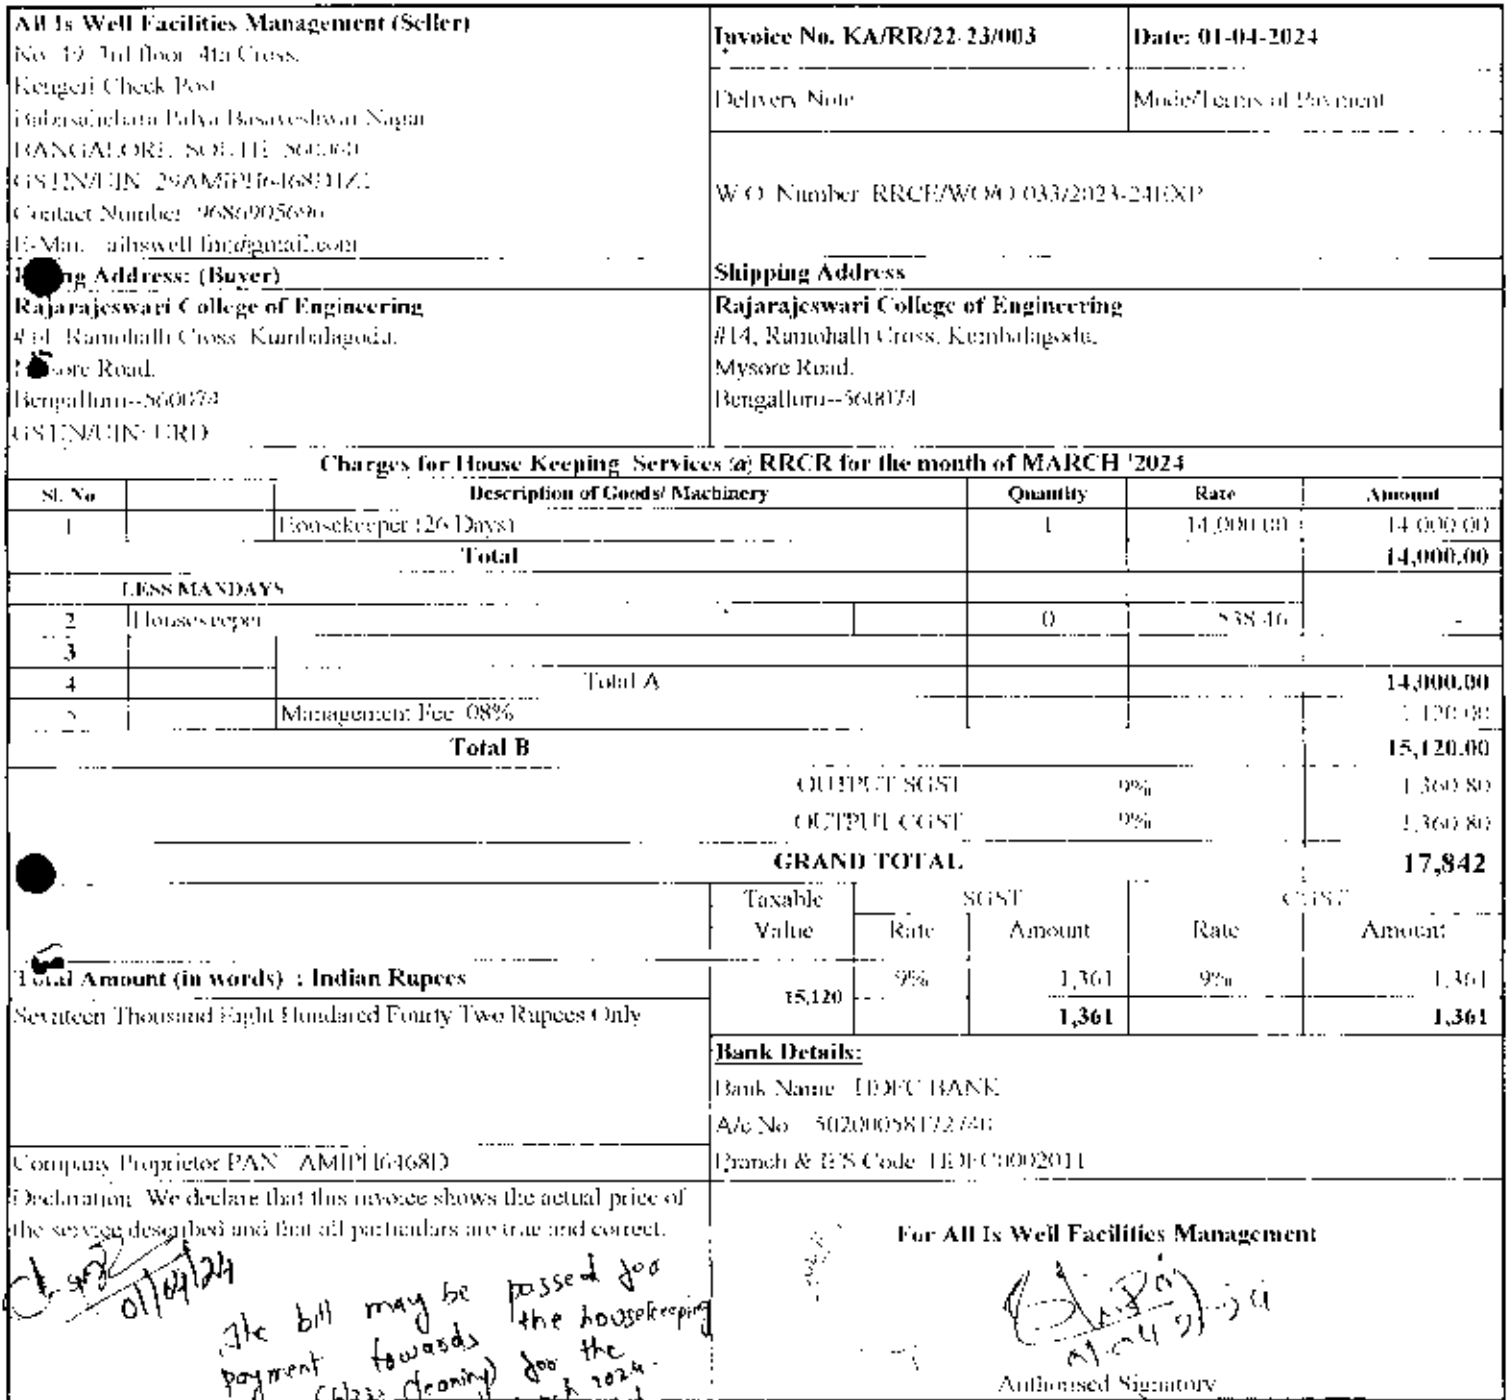 All Is Well Facilities Management (Seller)
No. 19, 3rd floor, 4th Cross,
Kengeri Check Post
Palya Basaveshwar Nagar
BANGALORE SOUTH 560060
GSTIN/UIN
Contact Number 9686905696
E-Mail
Invoice No. KA/RR/22-23/003
Date: 01-04-2024
Delivery Note
Mode/Terms of Payment
W.O. Number RRCE/WO/O 033/2023-24EXP
Address: (Buyer)
Rajarajeswari College of Engineering
Ramohalli Cross, Kumbalagodu,
Road.
Bengalluru--560074
GSTIN/UIN: URD
Shipping Address
Rajarajeswari College of Engineering
#14, Ramohalli Cross, Kumbalagodu,
Mysore Road.
Bengalluru--560074
Charges for House Keeping Services @ RRCR for the month of MARCH '2024
Sl. No Description of Goods/ Machinery Quantity Rate Amount
1 Housekeeper (26 Days) 1 14,000.00 14,000.00
Total 14,000.00
LESS MANDAYS
2 Housekeeper 0 538.46 -
3
4 Total A 14,000.00
5 Management Fee 08% 1,120.00
Total B 15,120.00
OUTPUT SGST 9% 1,360.80
OUTPUT CGST 9% 1,360.80
GRAND TOTAL 17,842
Taxable Value SGST CGST
Rate Amount Rate Amount
15,120 9% 1,361 9% 1,361
1,361 1,361
Total Amount (in words) : Indian Rupees
Sevnteen Thousand Eight Hundared Fourty Two Rupees Only
Bank Details:
Bank Name HDFC BANK
A/c No
Branch & IFS Code HDFC0002011
Company Proprietor PAN AMIPH6468D
Declaration We declare that this invoice shows the actual price of
the service described and that all particulars are true and correct.
01/04/24
The bill may be passed for
payment towards the housekeeping
cleaning) for the
2024
For All Is Well Facilities Management
Authorised Signatory